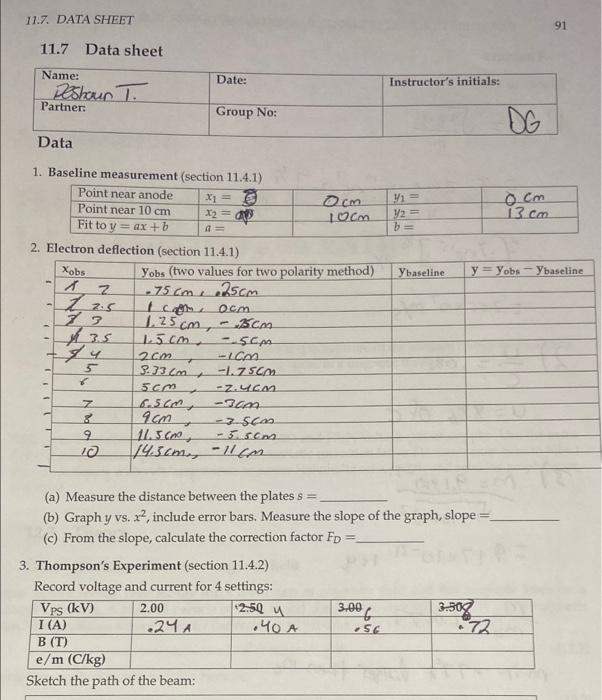 11.7. DATA SHEET 91
11.7 Data sheet
Name: Deshaun T. Date: Instructor's initials: DG
Partner: Group No:
Data
1. Baseline measurement (section 11.4.1)
Point near anode x₁ = 0 cm y₁ = 0 cm
Point near 10 cm x₂ = 10cm y₂ = 13 cm
Fit to y = ax + b a = b =
2. Electron deflection (section 11.4.1)
x_obs y_obs (two values for two polarity method) y_baseline y = y_obs − y_baseline
2 .75 cm, .25cm
2.5 1 cm, 0cm
3 1.25 cm, -.25cm
3.5 1.5 cm, -.5cm
4 2cm, -1cm
5 3.33cm, -1.75cm
6 5cm -2.4cm
7 6.5cm, -3cm
8 9cm -3.5cm
9 11.5cm, -5.5cm
10 14.5cm, -11cm
(a) Measure the distance between the plates s =
(b) Graph y vs. x², include error bars. Measure the slope of the graph, slope =
(c) From the slope, calculate the correction factor F_D =
3. Thompson's Experiment (section 11.4.2)
Record voltage and current for 4 settings:
V_PS (kV) 2.00 2.50 4 3.00 6 3.50 8
I (A) .24 A .40 A .56 .72
B (T)
e/m (C/kg)
Sketch the path of the beam: